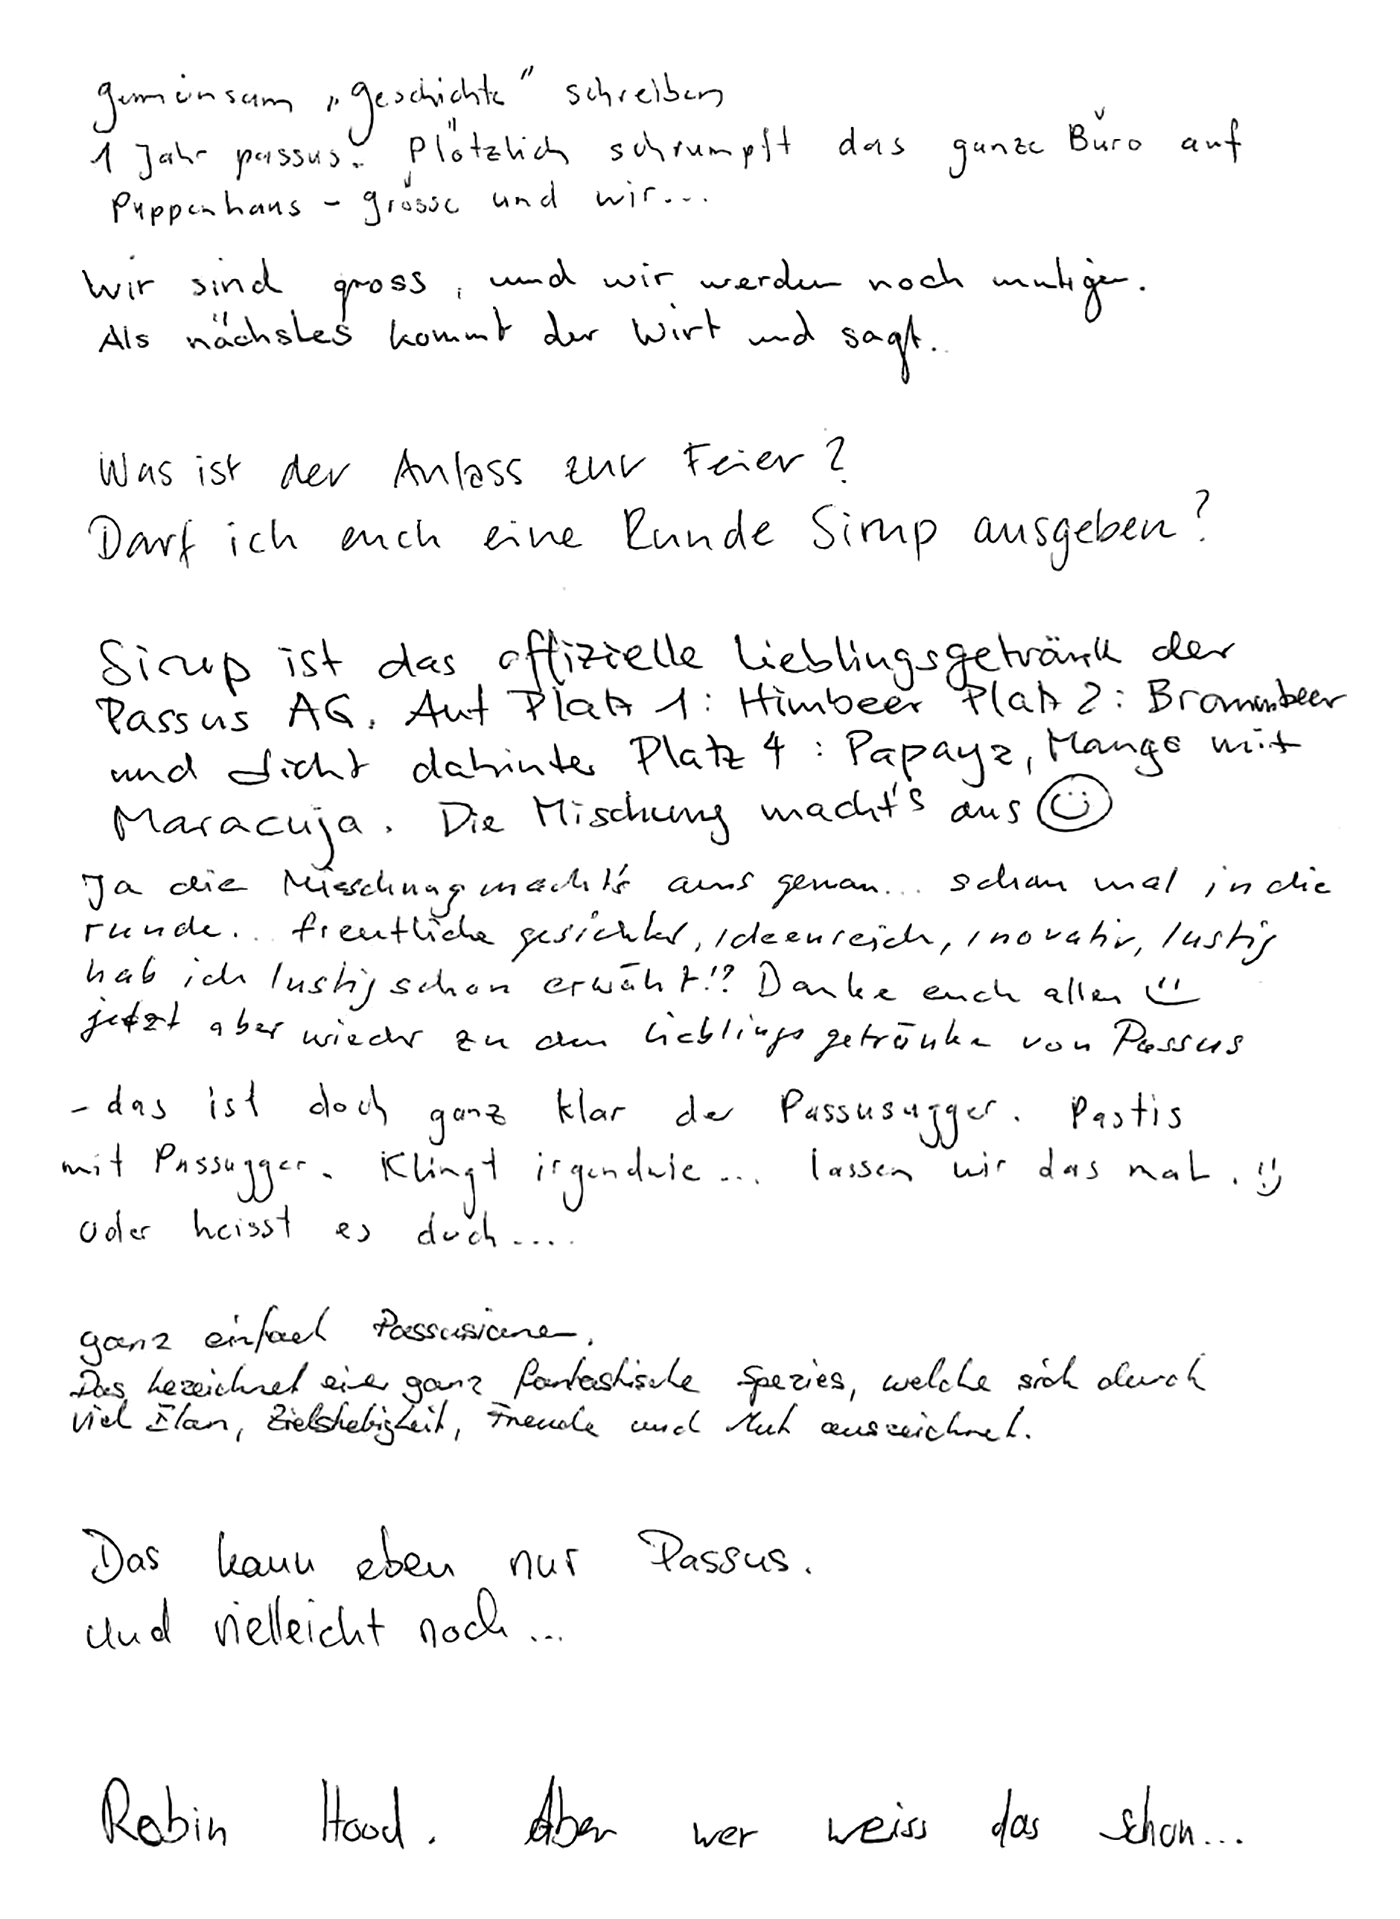 gemeinsam „geschichte" schreiben
1 Jahr passus. Plötzlich schrumpft das ganze Büro auf
Puppenhaus - grösse und wir...
Wir sind gross, und wir werden noch mutiger.
Als nächstes kommt der Wirt und sagt.
Was ist der Anlass zur Feier?
Darf ich euch eine Runde Sirup ausgeben?
Sirup ist das offizielle Lieblingsgetränk der
Passus AG. Auf Platz 1: Himbeer Platz 2: Brombeer
und dicht dahinter Platz 4: Papaya, Mango mit
Maracuja. Die Mischung macht's aus ☺
Ja die Misschung macht's aus genau... schau mal in die
runde... freutliche gesichter, ideenreich, inovativ, lustig
hab ich lustig schon erwäht!? Danke euch allen ☺
jetzt aber wieder zu den lieblings getränke von Passus
- das ist doch ganz klar der Passusugger. Pastis
mit Passugger. Klingt irgendwie... lassen wir das mal. ☺
Oder heisst es doch....
ganz einfach Passusianer.
Das bezeichnet eine ganz fantastische Spezies, welche sich durch
viel Elan, Zielstrebigkeit, Freude und Mut auszeichnet.
Das kann eben nur Passus.
Und vielleicht noch...
Robin Hood. Aber wer weiss das schon...